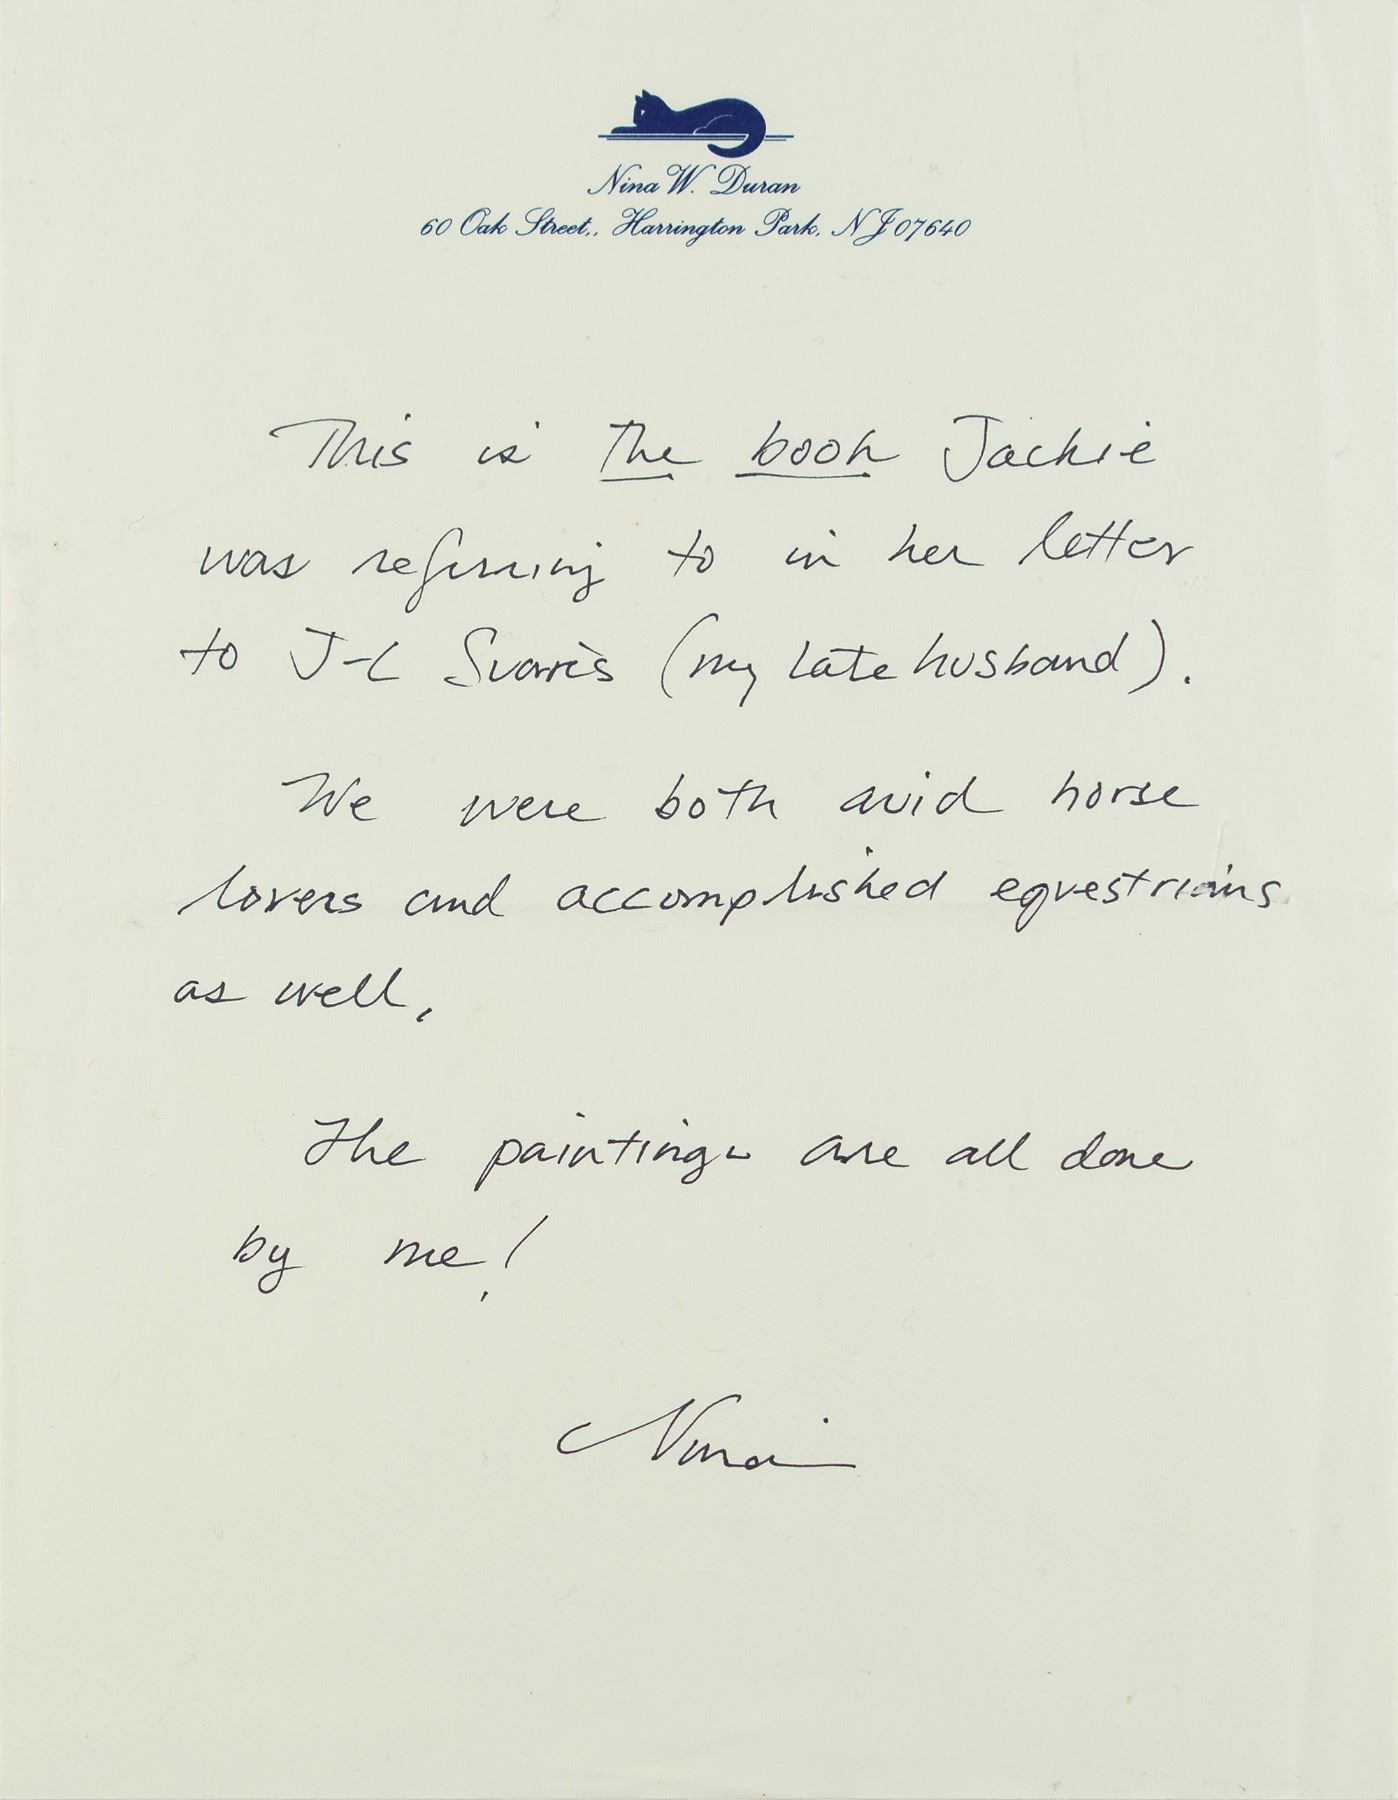 Nina W. Duran
60 Oak Street,, Harrington Park, NJ 07640
This is the book Jackie
was referring to in her letter
to J-L Svarrès (my late husband).
We were both avid horse
lovers and accomplished equestrians
as well,
The paintings are all done
by me!
Nina